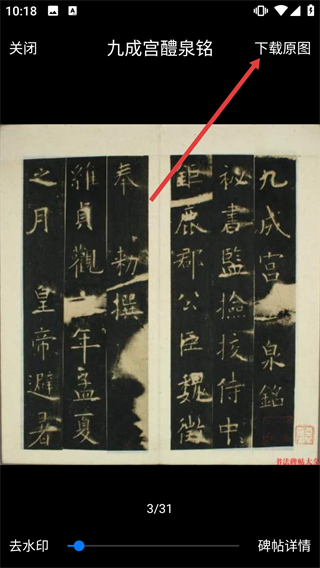 10:18
关闭
九成宫醴泉铭
下载原图
九成宫
泉銘
祕書監撿挍侍中
鉅鹿郡公臣魏徵
奉
勅撰
維貞觀
年孟夏
之月
皇帝避暑
书法碑帖大全
3/31
去水印
碑帖详情